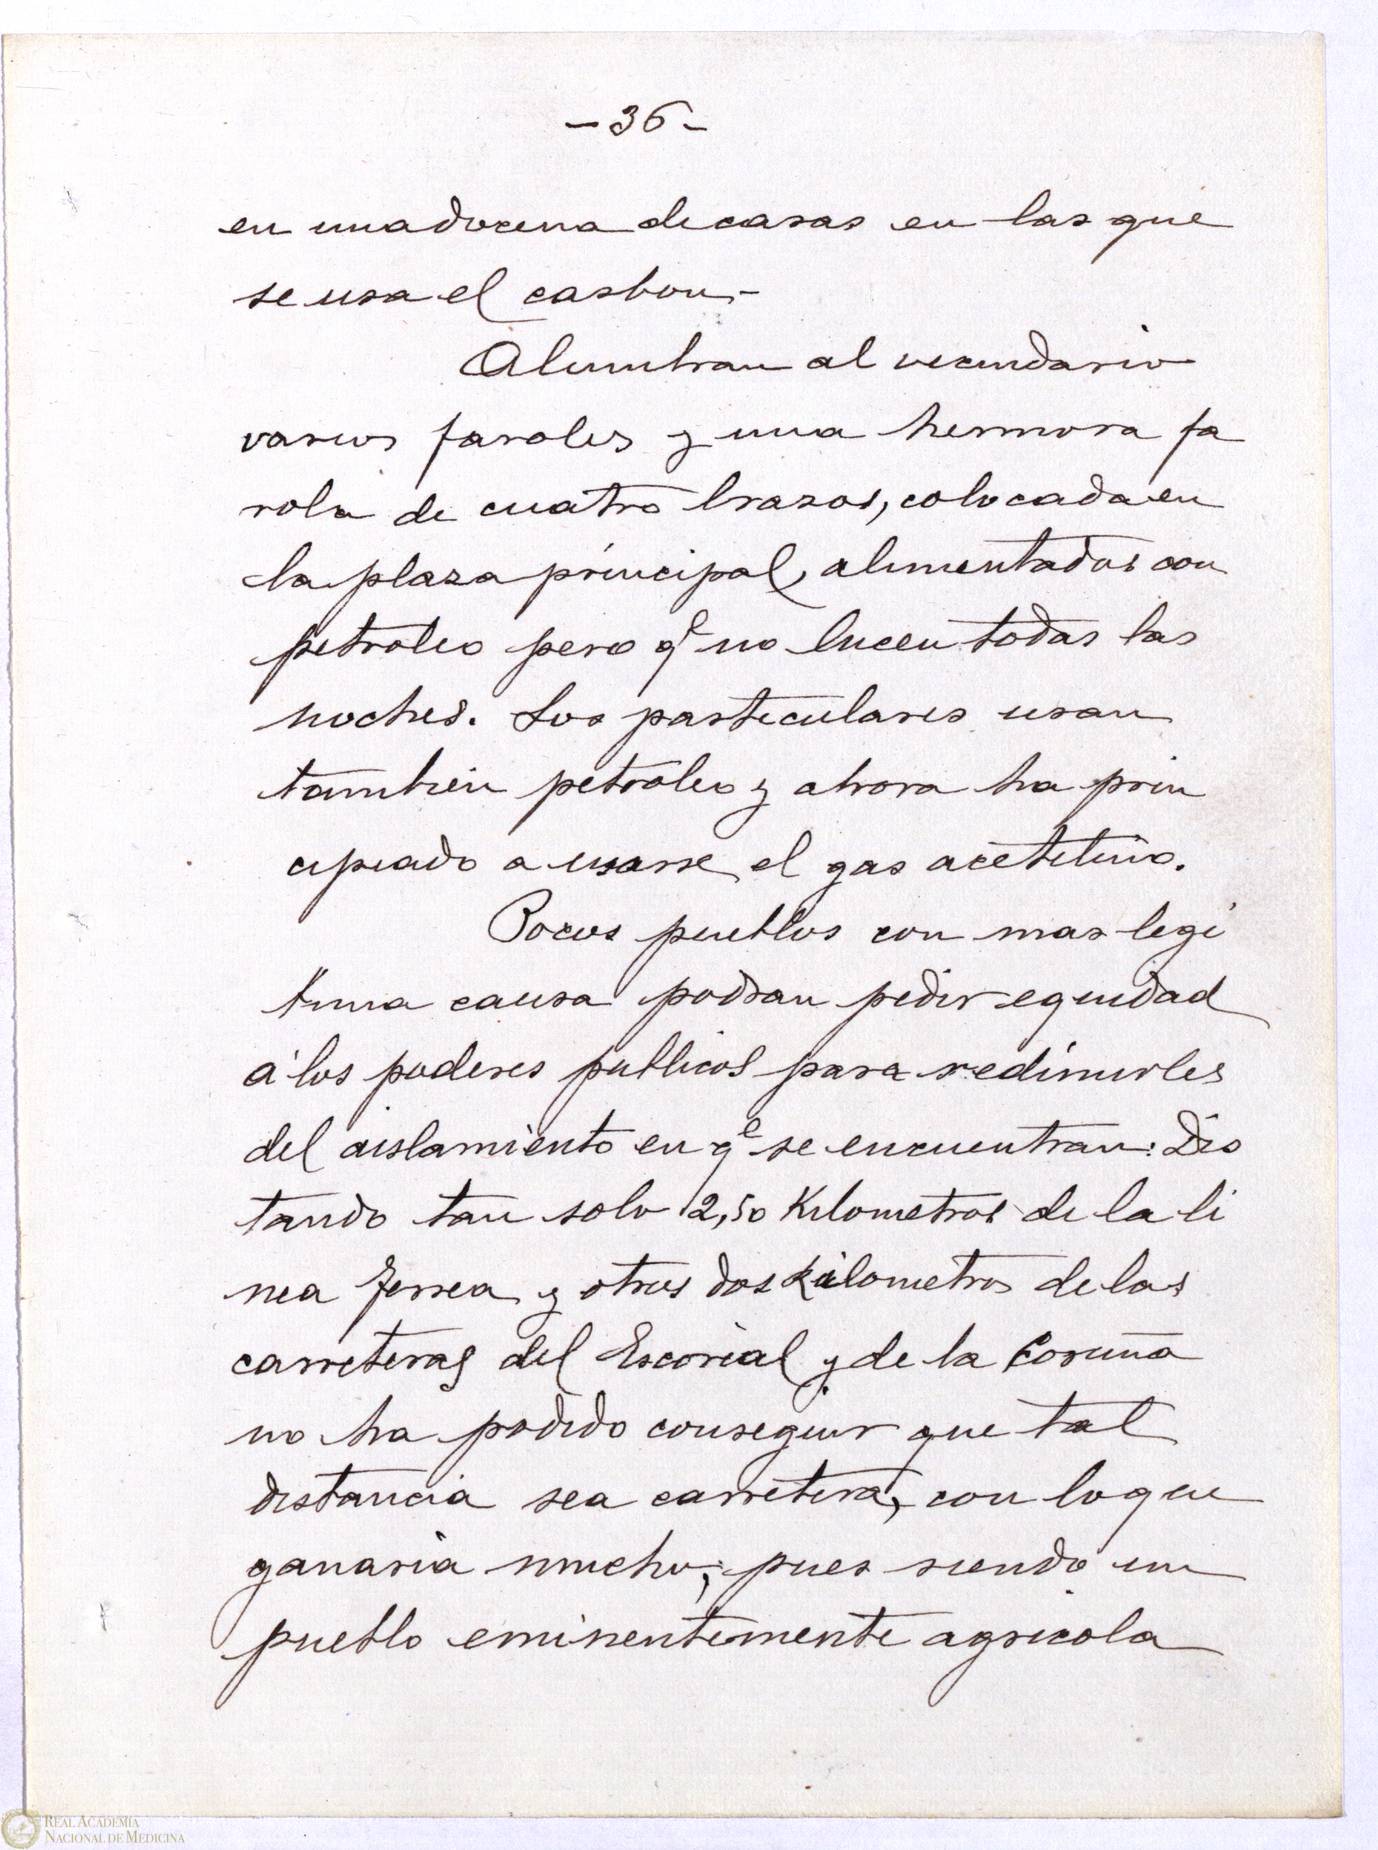 -36-
en una docena de casas en las que
se usa el carbon.-
Alumbran al vecindario
varios faroles y una hermosa fa
rola de cuatro brazos, colocada en
la plaza principal, alimentados con
petroleo pero qe no lucen todas las
noches. Los particulares usan
tambien petroleo y ahora ha prin
cipiado a usarse el gas acetileno.
Pocos pueblos con mas legi
tima causa podran pedir equidad
á los poderes publicos para redimirles
del aislamiento en qe se encuentran: Dis
tando tan solo 2,50 Kilometros de la li
nea ferrea y otros dos Kilometros de las
carreteras del Escorial y de la Coruña
no ha podido conseguir que tal
distancia sea carretera, con lo que
ganaria mucho; pues siendo un
pueblo eminentemente agricola
REAL ACADEMIA
NACIONAL DE MEDICINA